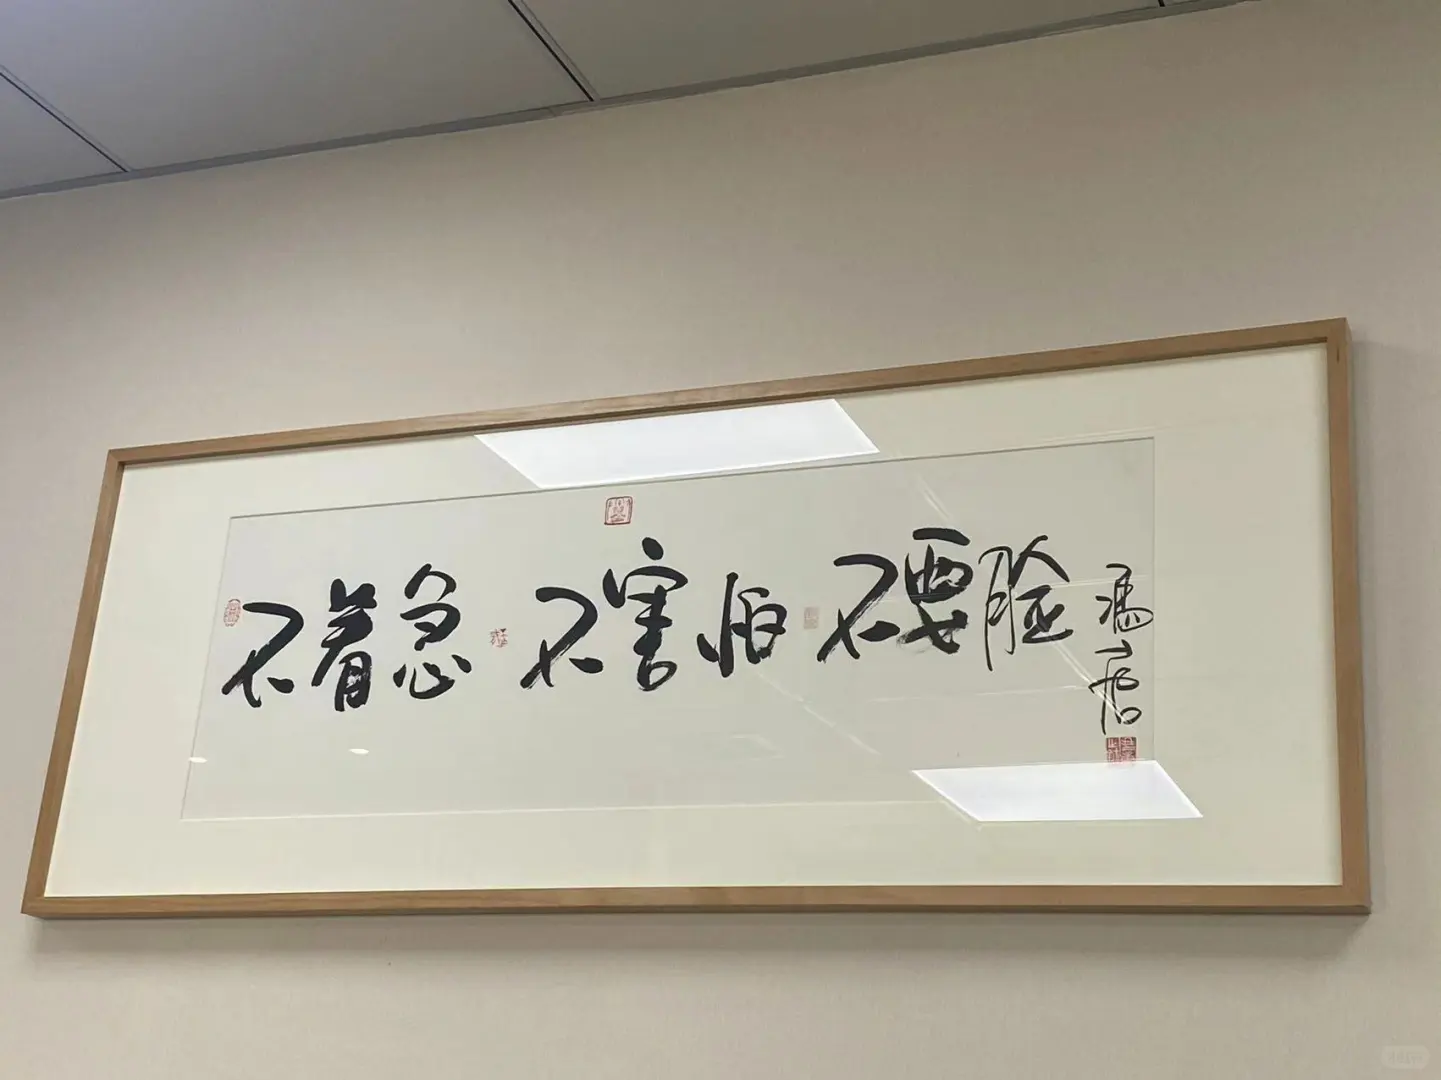 不着急 不害怕 不要脸
冯唐